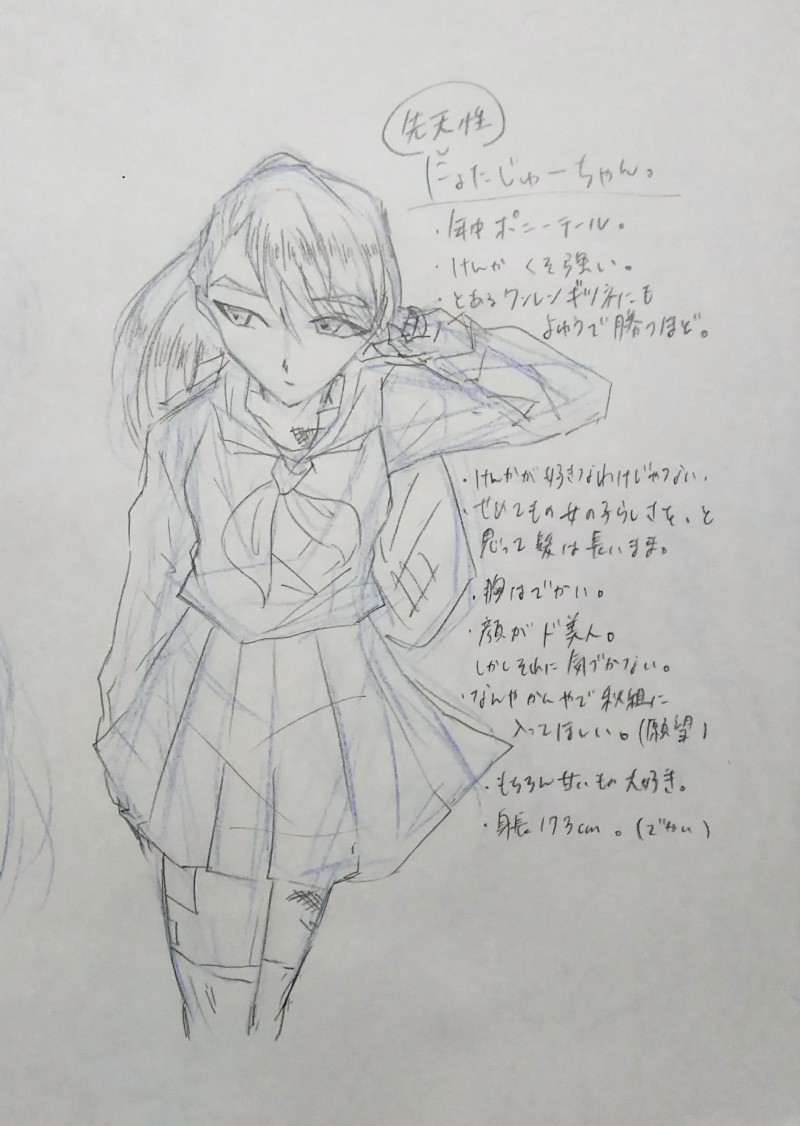 先天性
にょたじゅーちゃん。
・年中ポニーテール。
・けんか くそ強い。
・とあるワンレンギツネにも
よゆうで勝つほど。
・けんかが好きなわけじゃない。
・ぜひても女の子らしさを、と
思って髪は長いまま。
・胸はでかい。
・顔がド美人。
しかしそれに気づかない。
・なんやかんやで秋組に
入ってほしい。(願望)
・もちろん甘いもの大好き。
・身長173cm。(でかい)